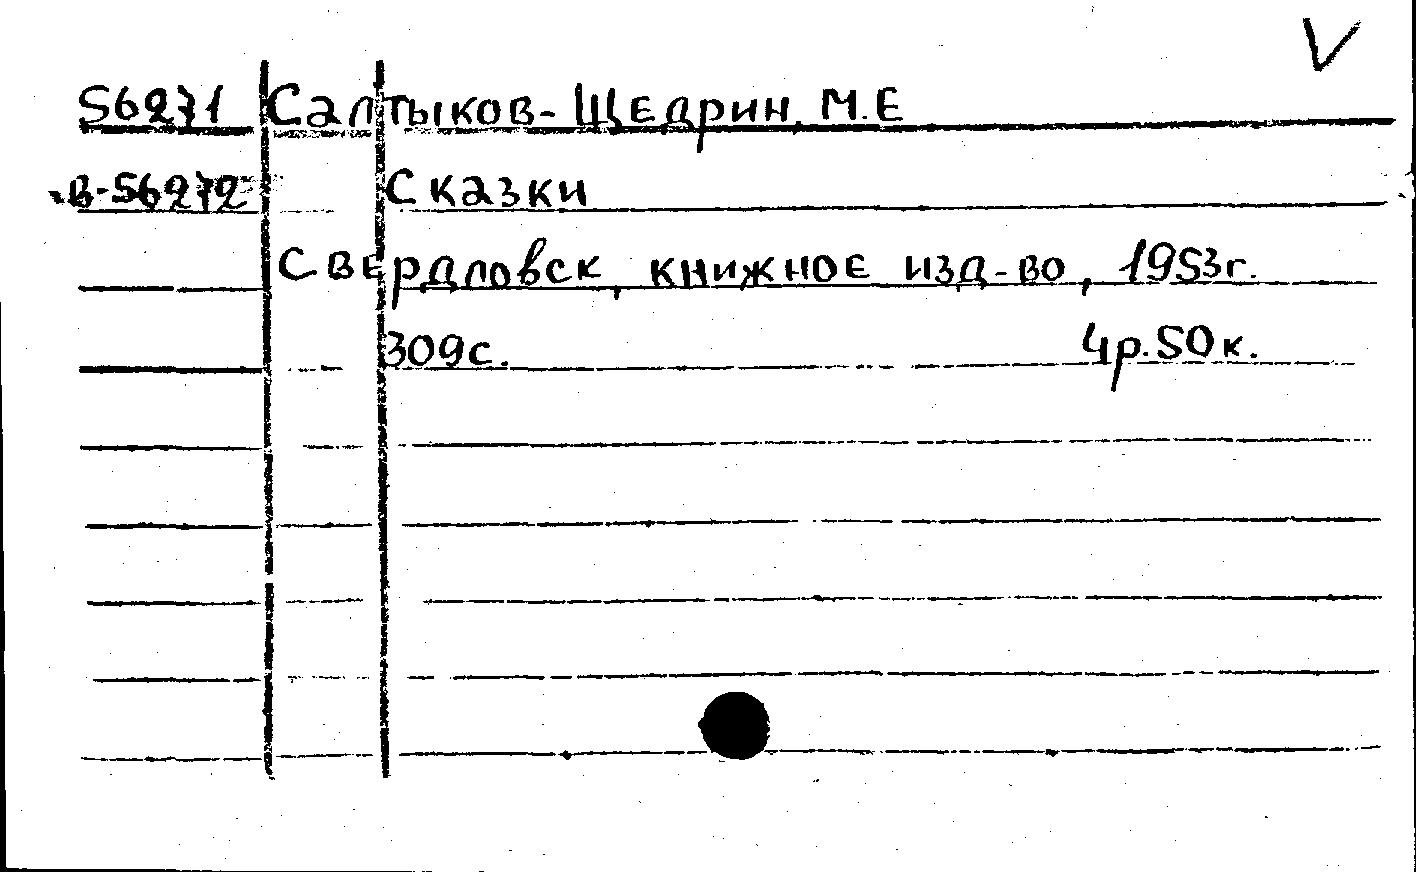 V
56271 Салтыков-Щедрин, М.Е
в-56272 Сказки
Свердловск, книжное изд-во, 1953г.
309с. 4р.50к.